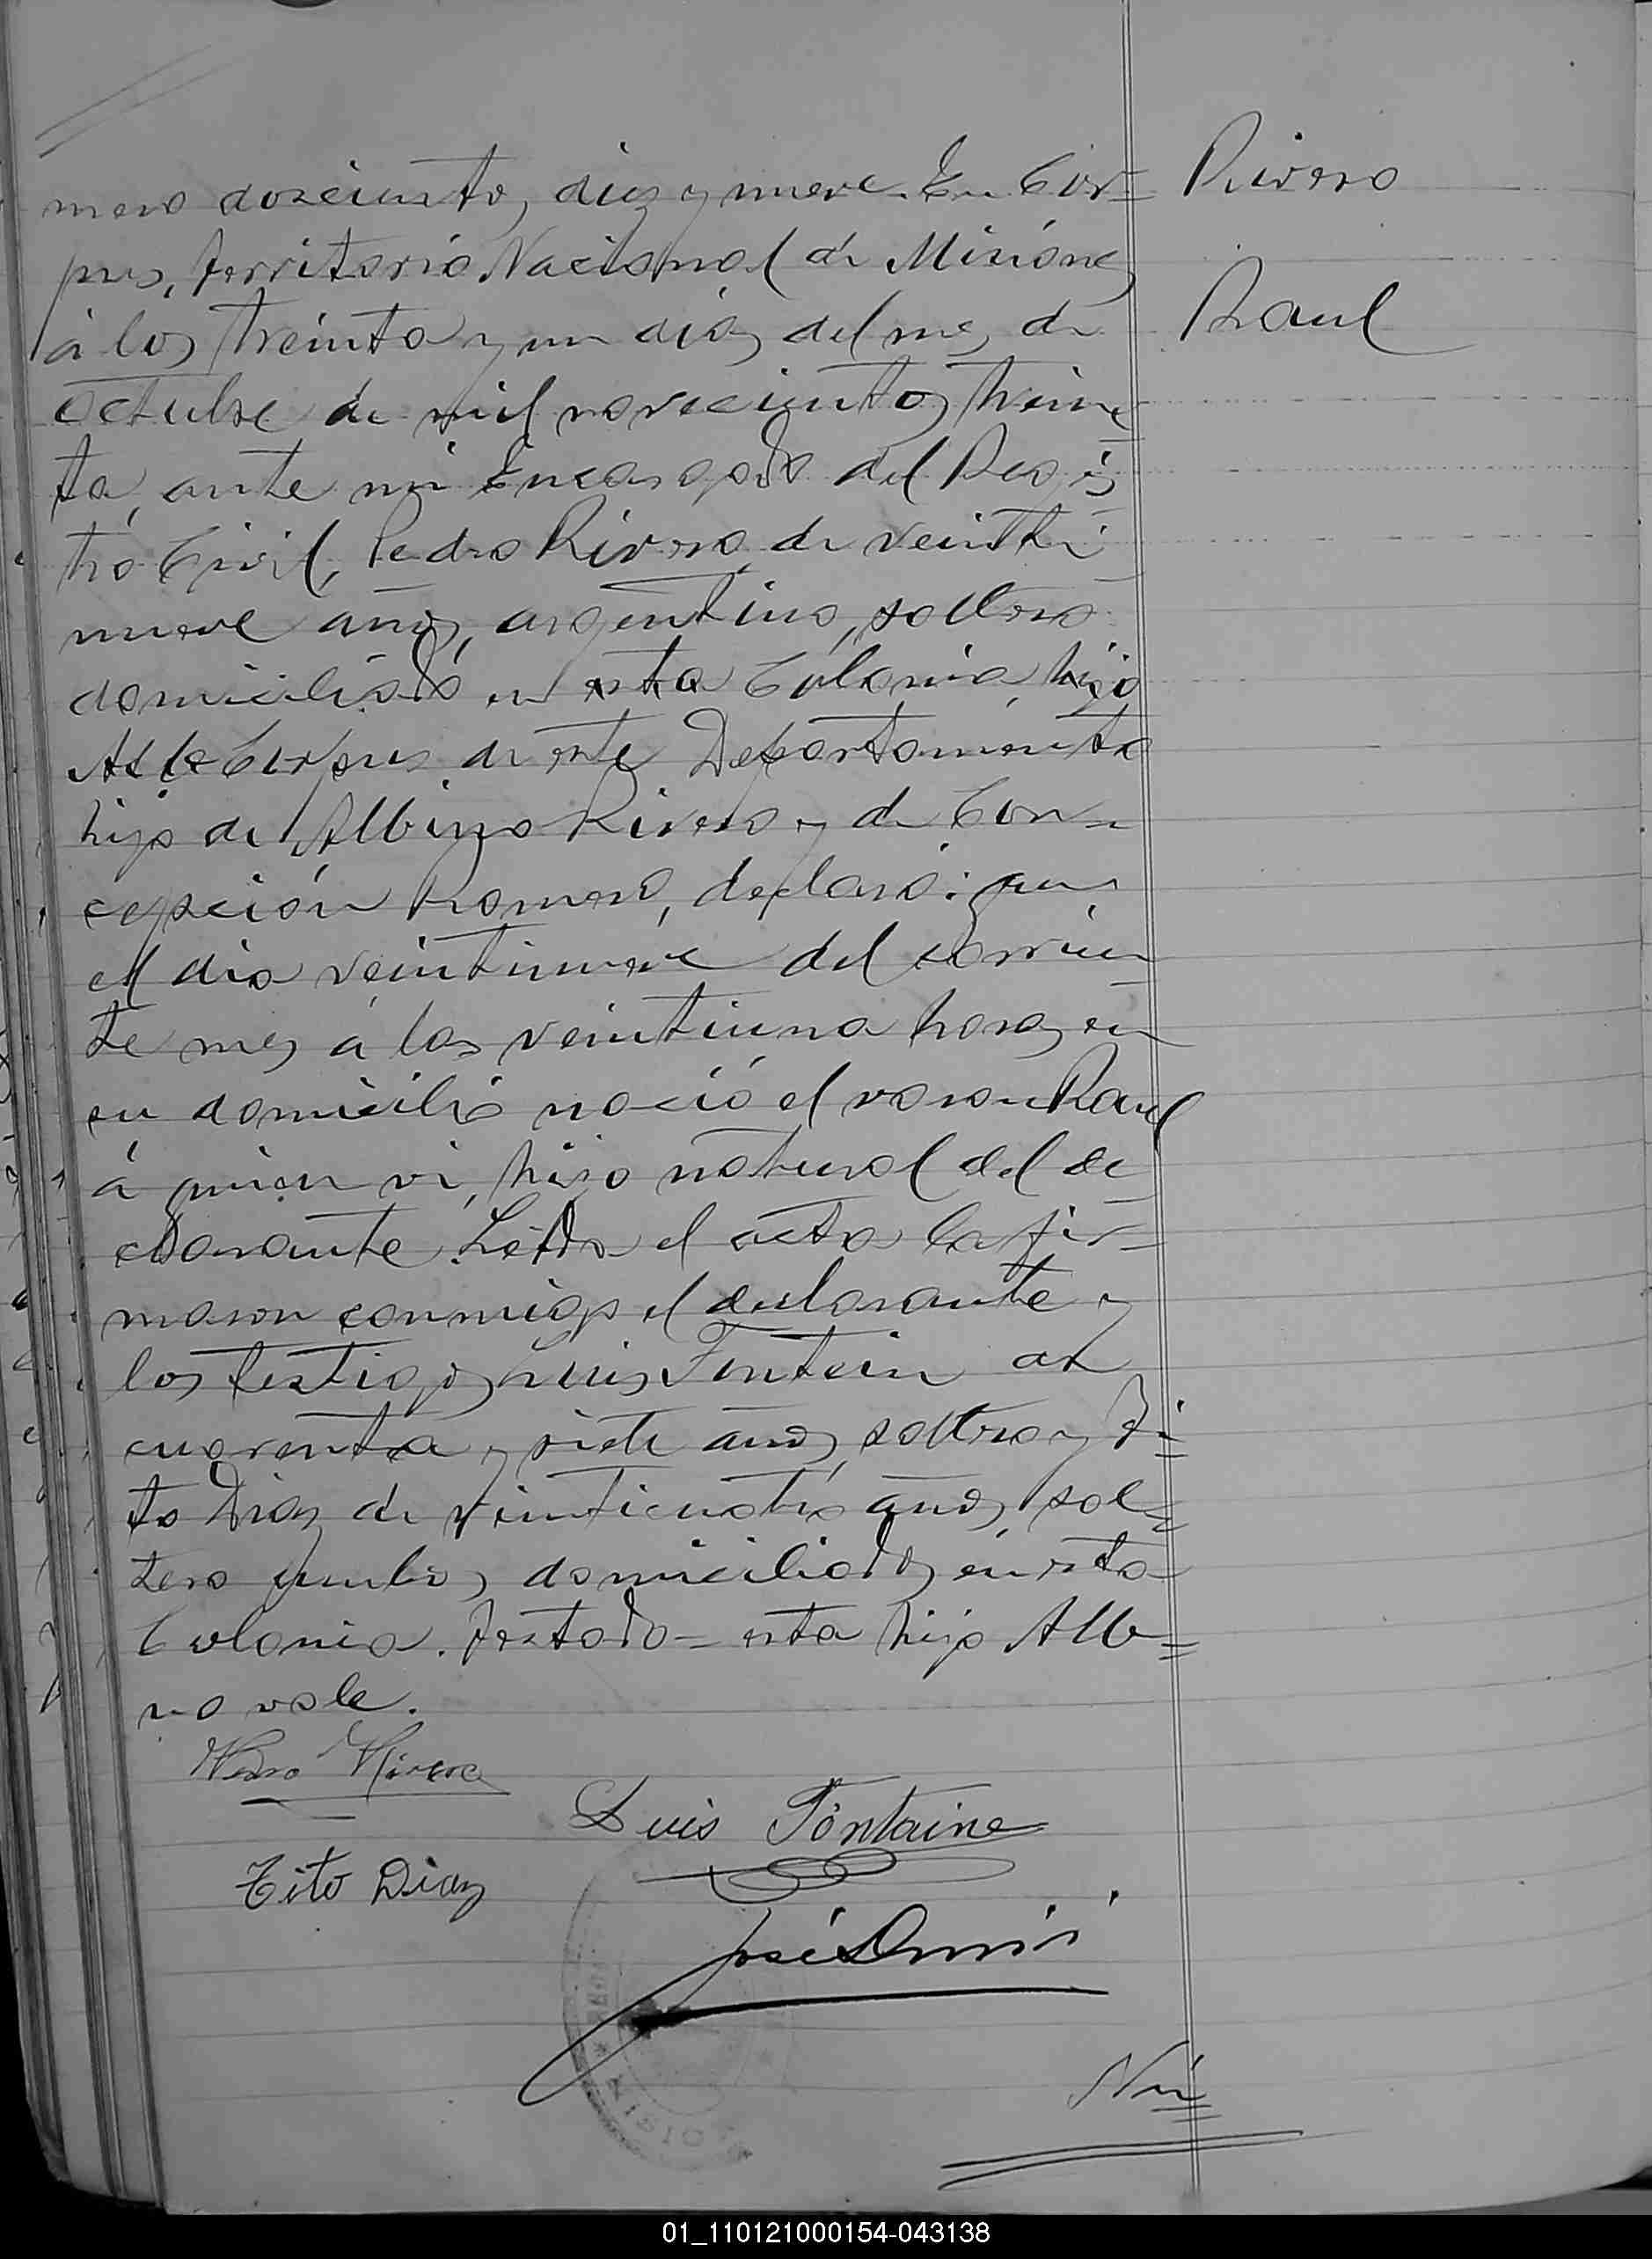 mero doscientos diez y nueve. En Cor=
pus, Territorio Nacional de Misiones
á los treinta y un dias del mes de
Octubre de mil novecientos trein
ta, ante mi Encargado del Regis
tro Civil, Pedro Rivero, de veinti
nueve años, argentino, soltero
domiciliado en esta Colonia, hijo
Corpus de este Departamento
hijo de Albino Rivero y de Con=
cepción Romero, declaró: que
el dia veintinueve del corrien
te mes á las veintiuna horas en
su domicilio nació el varon Raul
á quien vi, hijo natural del de
clarante. Leida el acta la fir=
maron conmigo el declarante y
los testigos Luis Fontein de
cuarenta y siete años, soltero y Ti=
to Diaz de veinticuatro años, sol=
tero ambos domiciliados en esta
Colonia. Testado = esta hijo Alb=
no vale.
Pedro Rivero
Luis Fontaine
Tito Diaz
José
Nú
Rivero
Raul
01_110121000154-043138